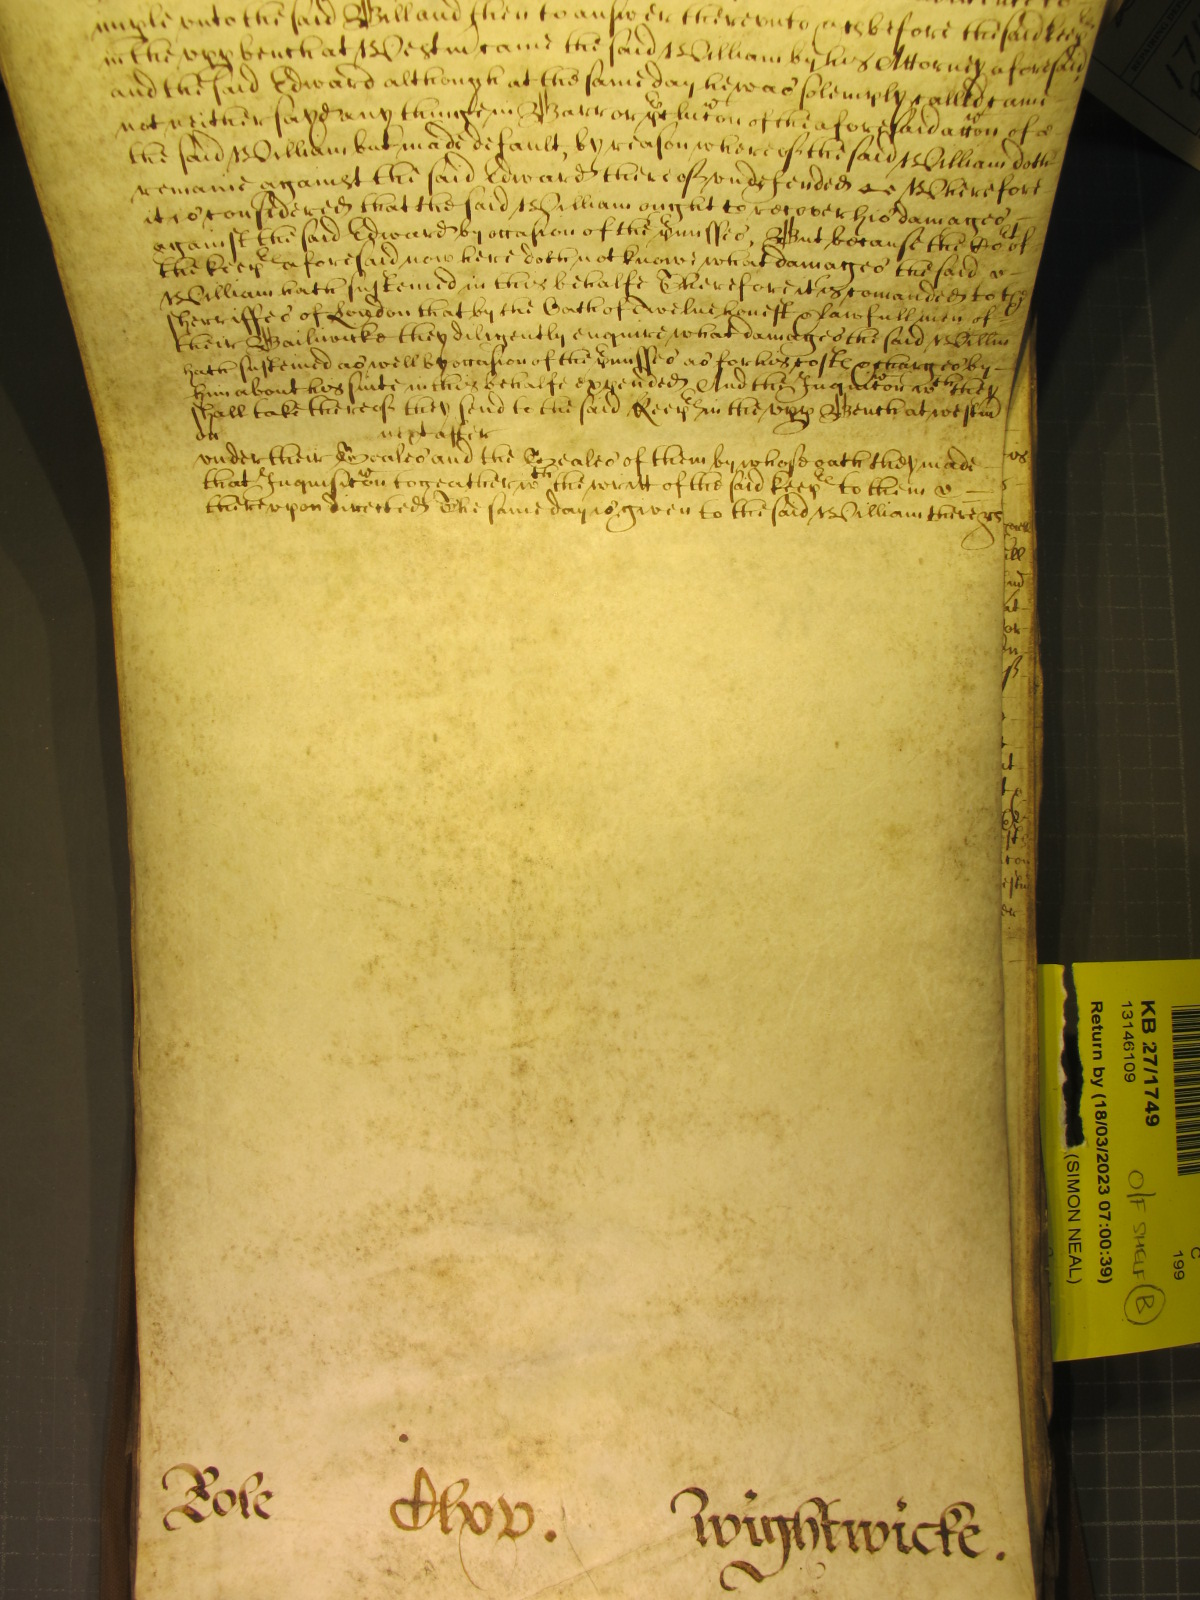 imple unto the said Bill and then to answer thereunto &c att before the said keepers
in the upp bench at Westm came the said William by his Attorney aforesaid
and the said Edward although at the same day he was solemply called came
not neither sayd any thinge in Barr or pclucon of the aforesaid accon of
the said William but made default, by reason whereof the said William doth
remaine against the said Edward thereof undefended Wherefore
it is considered that the said William ought to recover his damages
against the said Edward by occasion of the pmisses, But because the Co'rt of
the keep's aforesaid now here doth not know what damages the said
William hath susteined in this behalfe Therefore it is comanded to the
sherriffes of London that by the Oath of twelve honest & lawfull men of
their Bailiwicke they diligently enquire what damages the said Willm
hath susteined as well by occasion of the pmisses as for his costs & charges by
him about his suite in this behalfe expended And the Inquisicon wch they
shall take thereof they send to the said Keeps in the upp Bench at westm
on next after
under their Seales and the Seales of them by whose oath they made
that Inquisicon togeather wth the writt of the said keeps to them
thereupon directed The same day is given to the said William there &c
Role Clxv. Wightwicke.
KB 27/1749
13146109
Return by (18/03/2023 07:00:39)
(SIMON NEAL)
O/F SHELF B
C
199